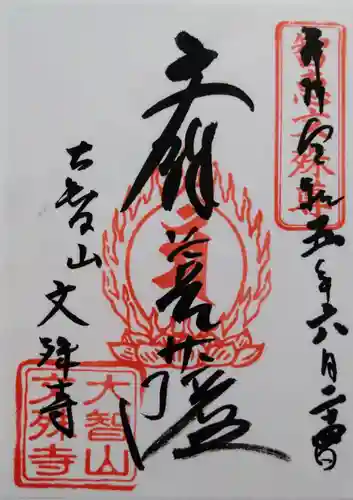 奉拝 令和五年六月二十四日
文殊菩薩
大智山
文殊寺
大智山
文殊寺